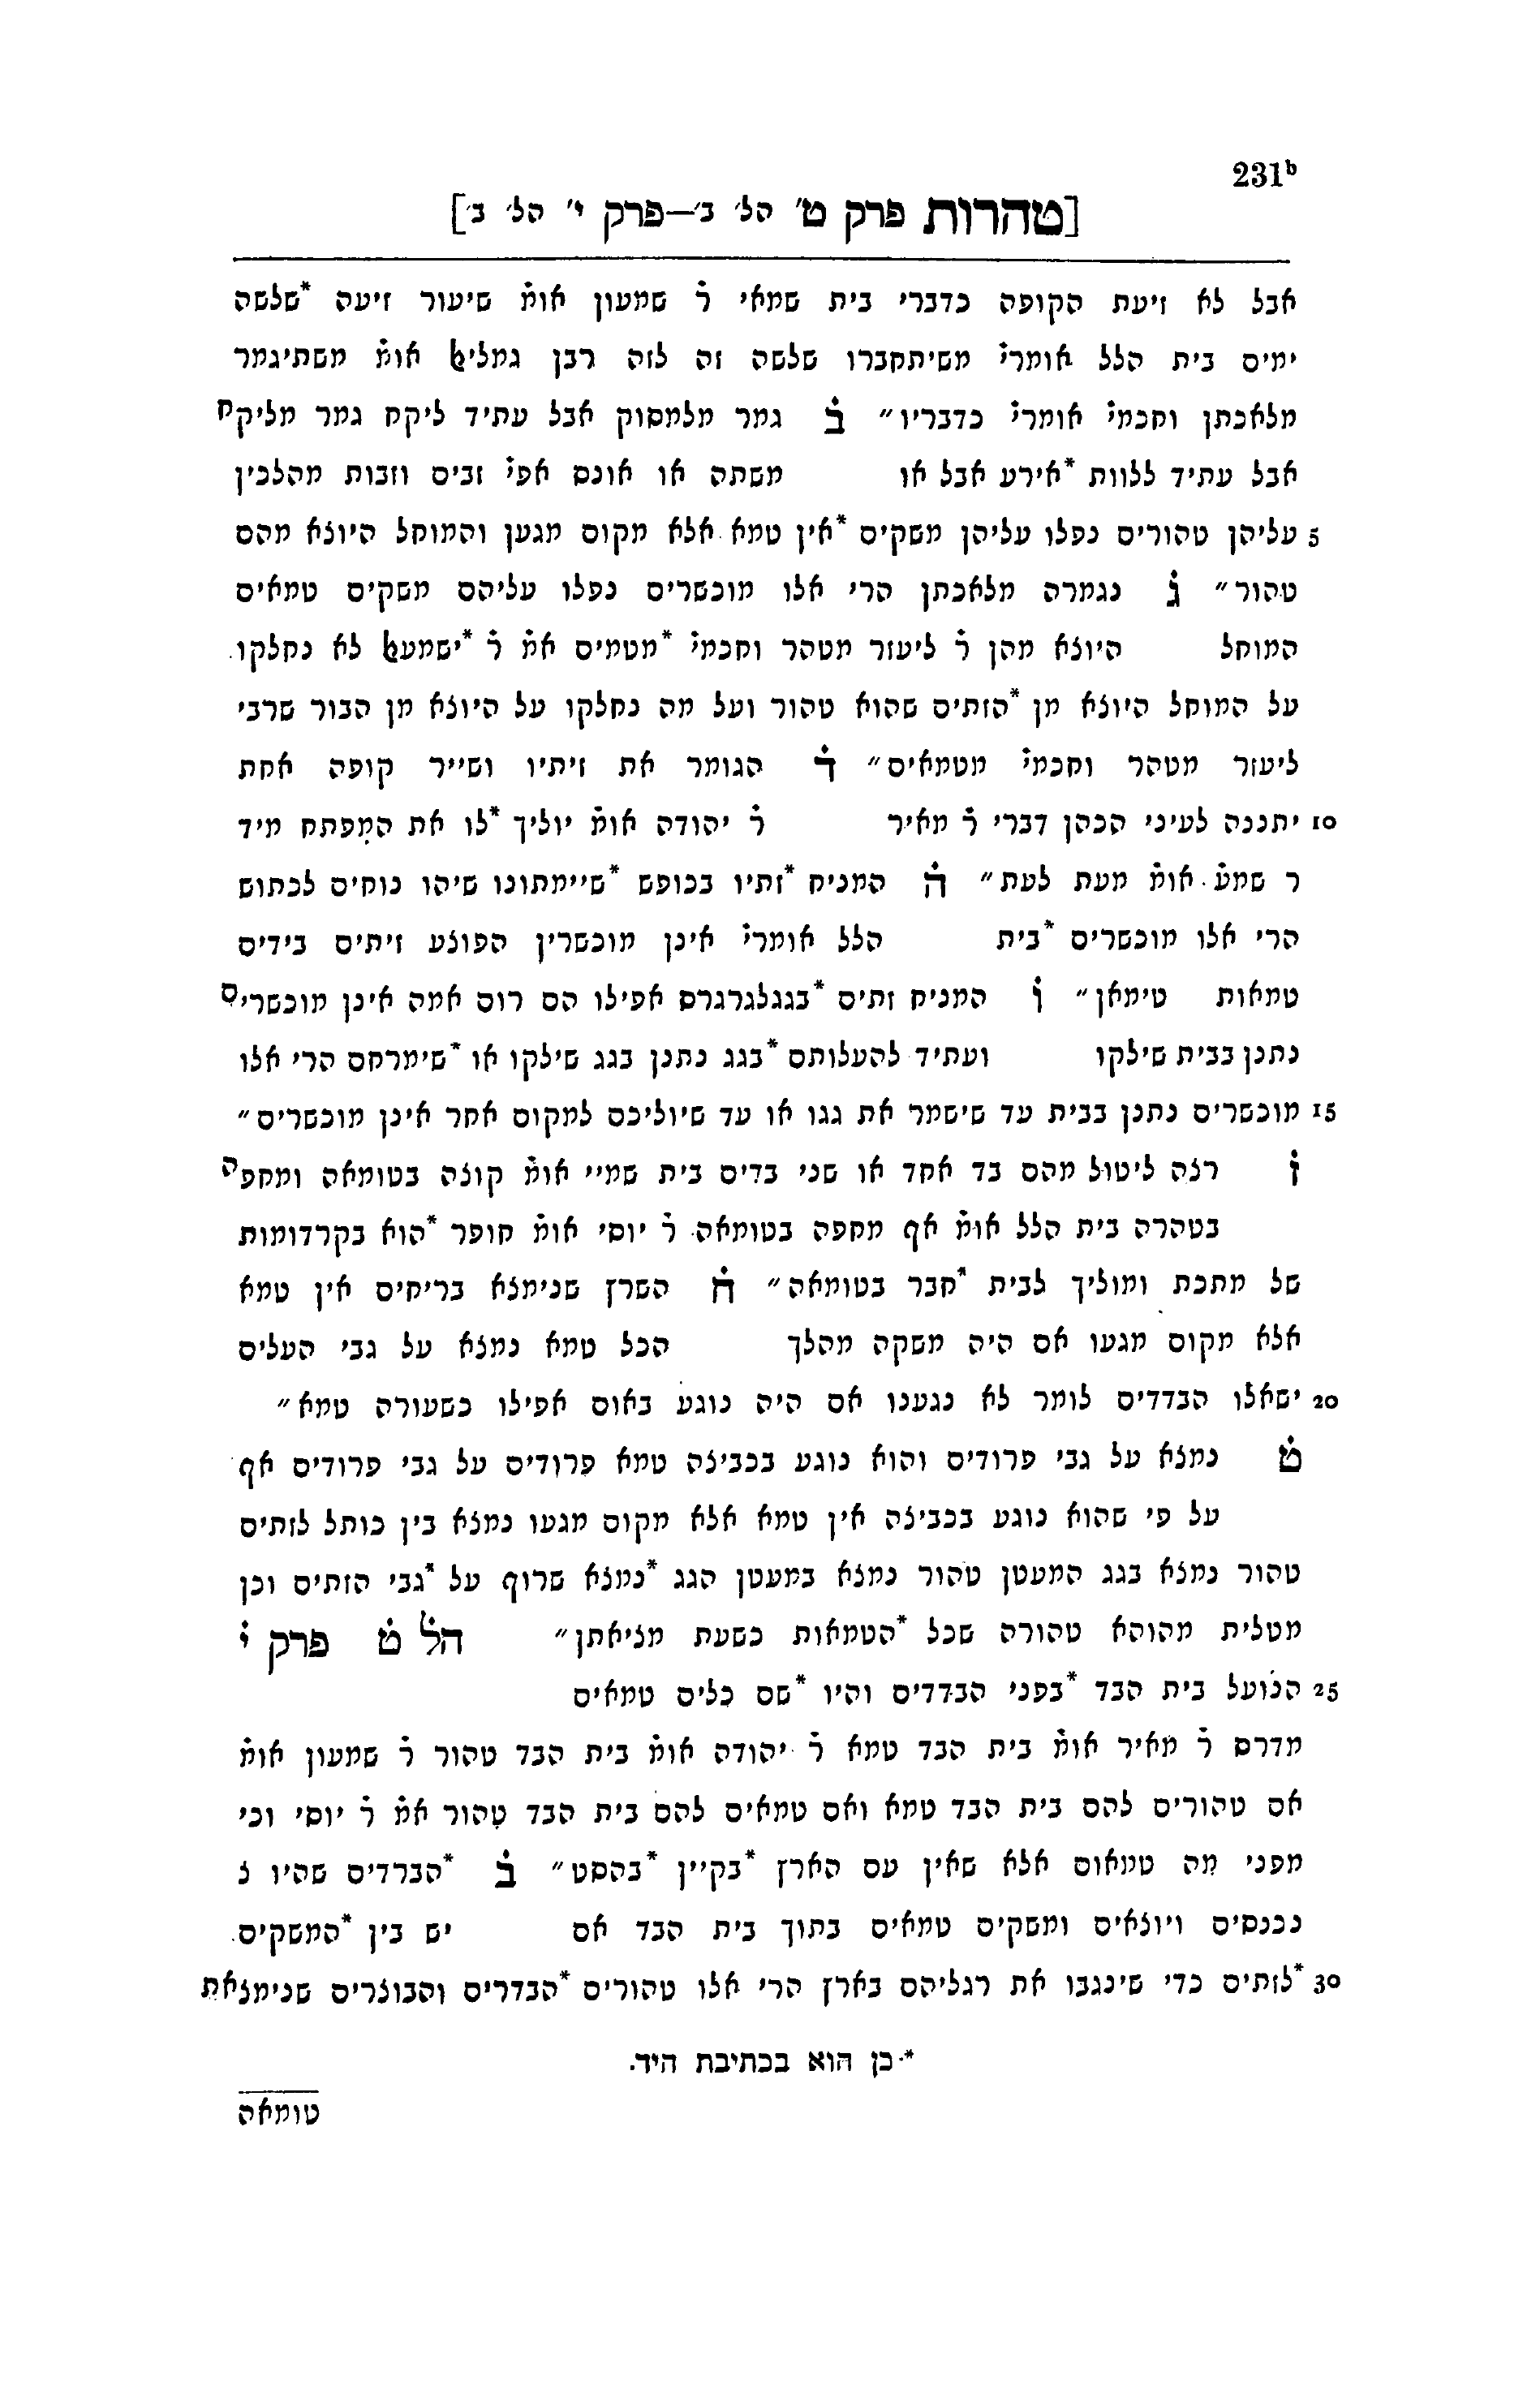 231b
[טהרות פרק ט׳ הל׳ ב׳—פרק י׳ הל׳ ב׳]
אבל לא זיעת הקופה כדברי בית שמאי ר׳ שמעון אומ׳ שיעור זיעה *שלשה
ימים בית הלל אומרי׳ משיתחברו שלשה זה לזה רבן גמליאל אומ׳ משתיגמר
מלאכתן וחכמי׳ אומרי׳ כדבריו״ ב׳ גמר מלמסוק אבל עתיד ליקח גמר מליקח
אבל עתיד ללוות *אירע אבל או משתה או אונס אפי׳ זבים וזבות מהלכין
5 עליהן טהורים נפלו עליהן משקים *אין טמא אלא מקום מגען והמוחל היוצא מהם
טהור״ ג׳ נגמרה מלאכתן הרי אלו מוכשרים נפלו עליהם משקים טמאים
המוחל היוצא מהן ר׳ ליעזר מטהר וחכמי׳ *מטמים אמ׳ ר׳ *ישמעאל לא נחלקו
על המוחל היוצא מן *הזתים שהוא טהור ועל מה נחלקו על היוצא מן הבור שרבי
ליעזר מטהר וחכמי׳ מטמאים״ ד׳ הגומר את זיתיו ושייר קופה אחת
10 יתננה לעיני הכהן דברי ר׳ מאיר ר׳ יהודה אומ׳ יוליך *לו את המפתח מיד
ר שמע׳ אומ׳ מעת לעת״ ה׳ המניח *זתיו בכופש *שיימתונו שיהו נוחים לכתוש
הרי אלו מוכשרים *בית הלל אומרי׳ אינן מוכשרין הפוצע זיתים בידים
טמאות טימאן״ ו׳ המניח זתים *בגגלגרגרם אפילו הם רום אמה אינן מוכשרים
נתנן בבית שילקו ועתיד להעלותם *בגג נתנן בגג שילקו או *שימרחם הרי אלו
15 מוכשרים נתנן בבית עד שישמר את גגו או עד שיוליכם למקום אחר אינן מוכשרים״
ז׳ רצה ליטול מהם בד אחד או שני בדים בית שמיי אומ׳ קוצה בטומאה ומחפה
בטהרה בית הלל אומ׳ אף מחפה בטומאה ר׳ יוסי אומ׳ חופר *הוא בקרדומות
של מתכת ומוליך לבית *חבר בטומאה״ ח׳ השרץ שנימצא בריחים אין טמא
אלא מקום מגעו אם היה משקה מהלך הכל טמא נמצא על גבי העלים
20 ישאלו הבדדים לומר לא נגענו אם היה נוגע באום אפילו כשעורה טמא״
ט׳ נמצא על גבי פרודים והוא נוגע בכביצה טמא פרודים על גבי פרודים אף
על פי שהוא נוגע בכביצה אין טמא אלא מקום מגעו נמצא בין כותל לזתים
טהור נמצא בגג המעטן טהור נמצא במעטן הגג *נמצא שרוף על *גבי הזתים וכן
מטלית מהוהא טהורה שכל *הטמאות כשעת מציאתן״ הל׳ ט׳ פרק י׳
25 הנועל בית הבד *בפני הבדדים והיו *שם כלים טמאים
מדרס ר׳ מאיר אומ׳ בית הבד טמא ר׳ יהודה אומ׳ בית הבד טהור ר׳ שמעון אומ׳
אם טהורים להם בית הבד טמא ואם טמאים להם בית הבד טהור אמ׳ ר׳ יוסי וכי
מפני מה טמאום אלא שאין עם הארץ *בקיין *בהסט״ ב׳ *הברדים שהיו נ
נכנסים ויוצאים ומשקים טמאים בתוך בית הבד אם יש בין *המשקים
30 *לזתים כדי שינגבו את רגליהם בארץ הרי אלו טהורים *הבדרים והבוצרים שנימצאת
*כן הוא בכתיבת היד.
טומאה